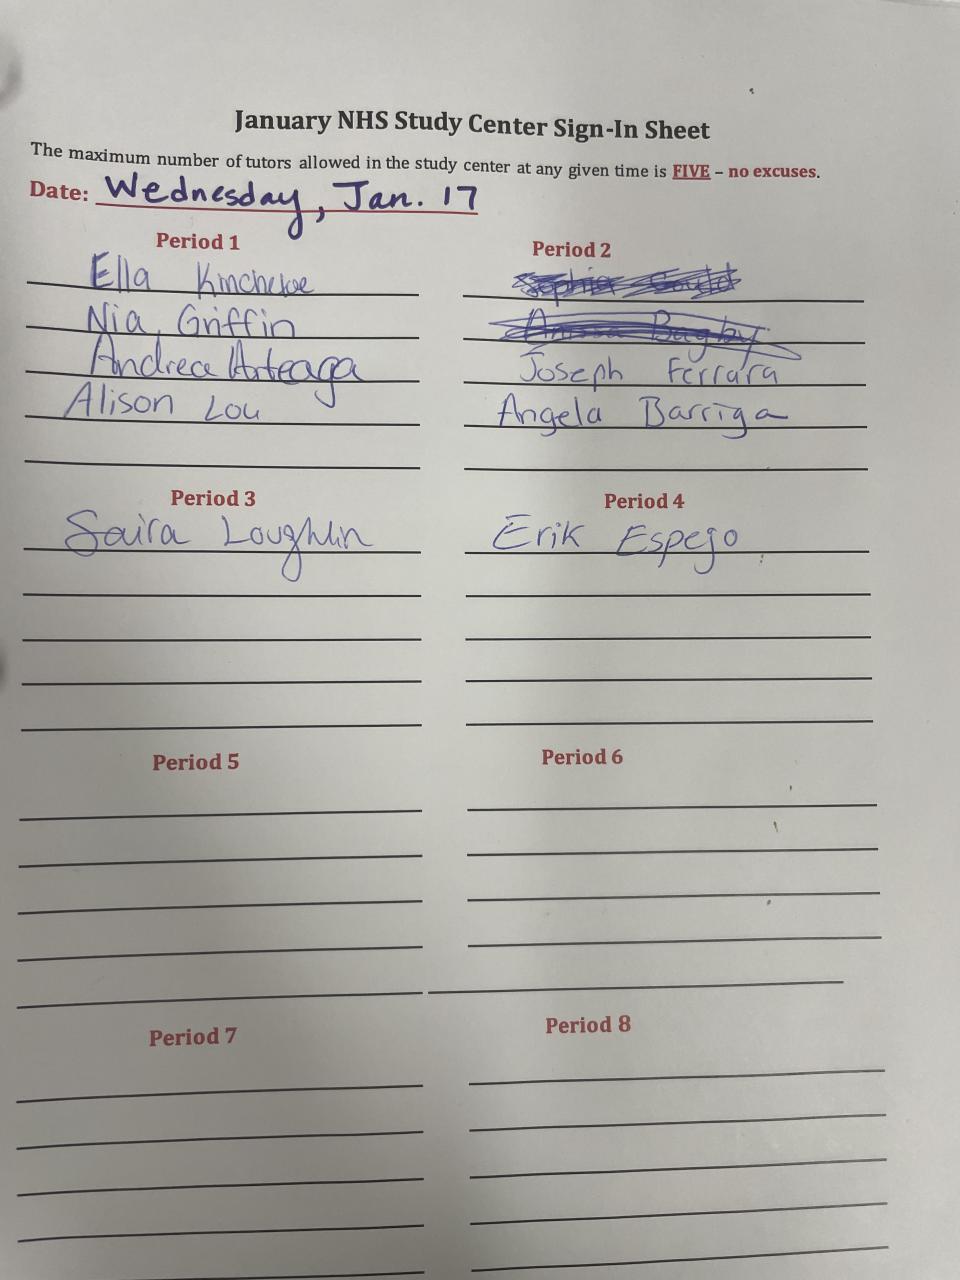 January NHS Study Center Sign-In Sheet
The maximum number of tutors allowed in the study center at any given time is FIVE – no excuses.
Date: Wednesday, Jan. 17
Period 1
Ella Kincheloe
Nia Griffin
Andrea Arteaga
Alison Lou
Period 2
Sophia Gould
Anissa Bagby
Joseph Ferrara
Angela Barriga
Period 3
Saira Loughlin
Period 4
Erik Espejo
Period 5
Period 6
Period 7
Period 8